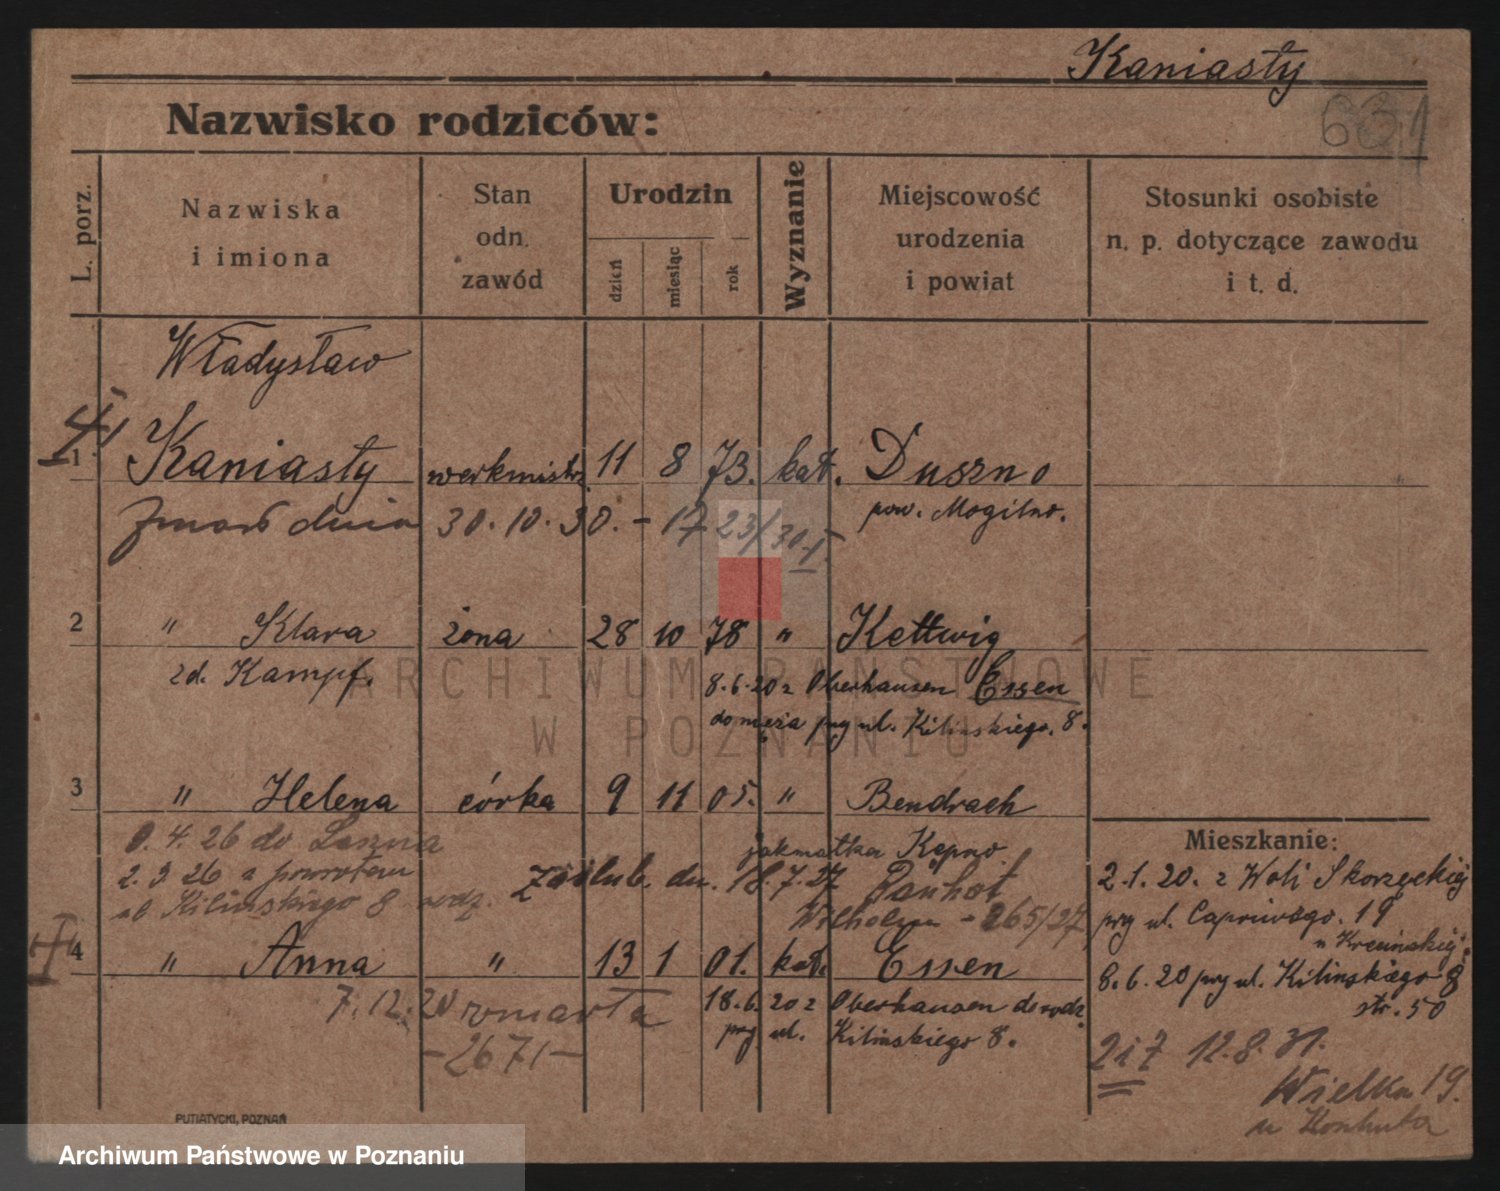 Kaniasty
Nazwisko rodziców:
661
L. porz.
Nazwiska
i imiona
Stan
odn.
zawód
Urodzin
dzień
miesiąc
rok
Wyznanie
Miejscowość
urodzenia
i powiat
Stosunki osobiste
n. p. dotyczące zawodu
i t. d.
Władysław
1 Kaniasty werkmistrz 11 8 73. kat. Duszno
pow. Mogilno.
Zmarł dnia 30.10.30. - 1723/30-I.
2 " Klara żona 28 10 78 " Kettwig
zd. Kampf.
8.6.20 z Oberhausen Essen
do męża przy ul. Kilińskiego. 8.
3 " Helena córka 9 11 05. " Bendrach
jak matka Kępno
9.4.26 do Leszna
2.9.26 z powrotem
ul. Kilińskiego 8 rodz.
zaślub. dn. 18.7.27
Wilhelm - 265/27
4 " Anna " 13 1 01. kat. Essen
18.6.20 z Oberhausen do rodz.
przy ul. Kilińskiego 8.
7.12.20 zmarła
-2671-
Mieszkanie:
2.1.20. z Woli Skorzęckiej
przy ul. Capriviego. 19
u
8.6.20 przy ul. Kilińskiego 8
str. 50
2 i 7 12.8.31.
Wielka 19.
u
PUTIATYCKI, POZNAŃ
ARCHIWUM PAŃSTWOWE
W POZNANIU
Archiwum Państwowe w Poznaniu